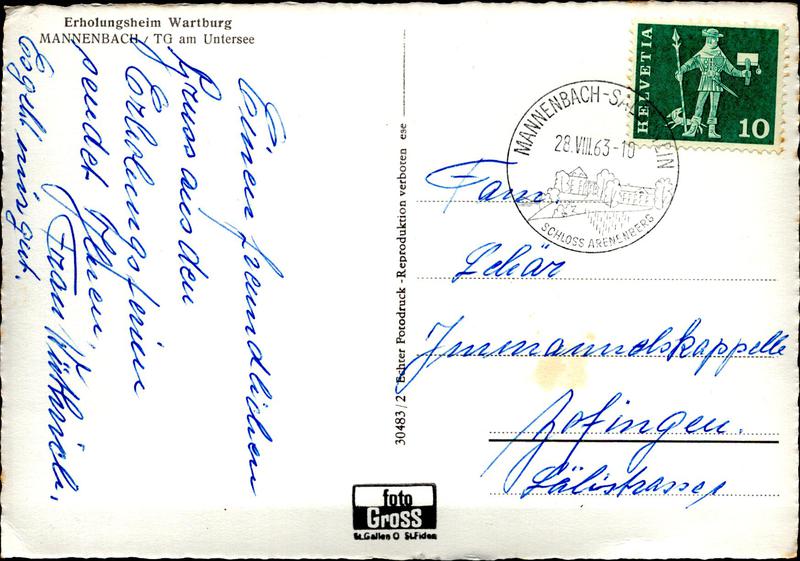 Erholungsheim Wartburg
MANNENBACH / TG am Untersee
Einen freundlichen
Gruss aus den
Erholungsferien
sendet Ihnen,
Frau
Es geht mir gut.
30483/2 Echter Fotodruck - Reproduktion verboten ese
HELVETIA
10
MANNENBACH-SALENSTEIN
28.VIII.63-10
SCHLOSS ARENENBERG
Fam.
Schär
Immanuelskappelle
Zofingen.
Sälistrasse
foto
Gross
St.Gallen O St.Fiden